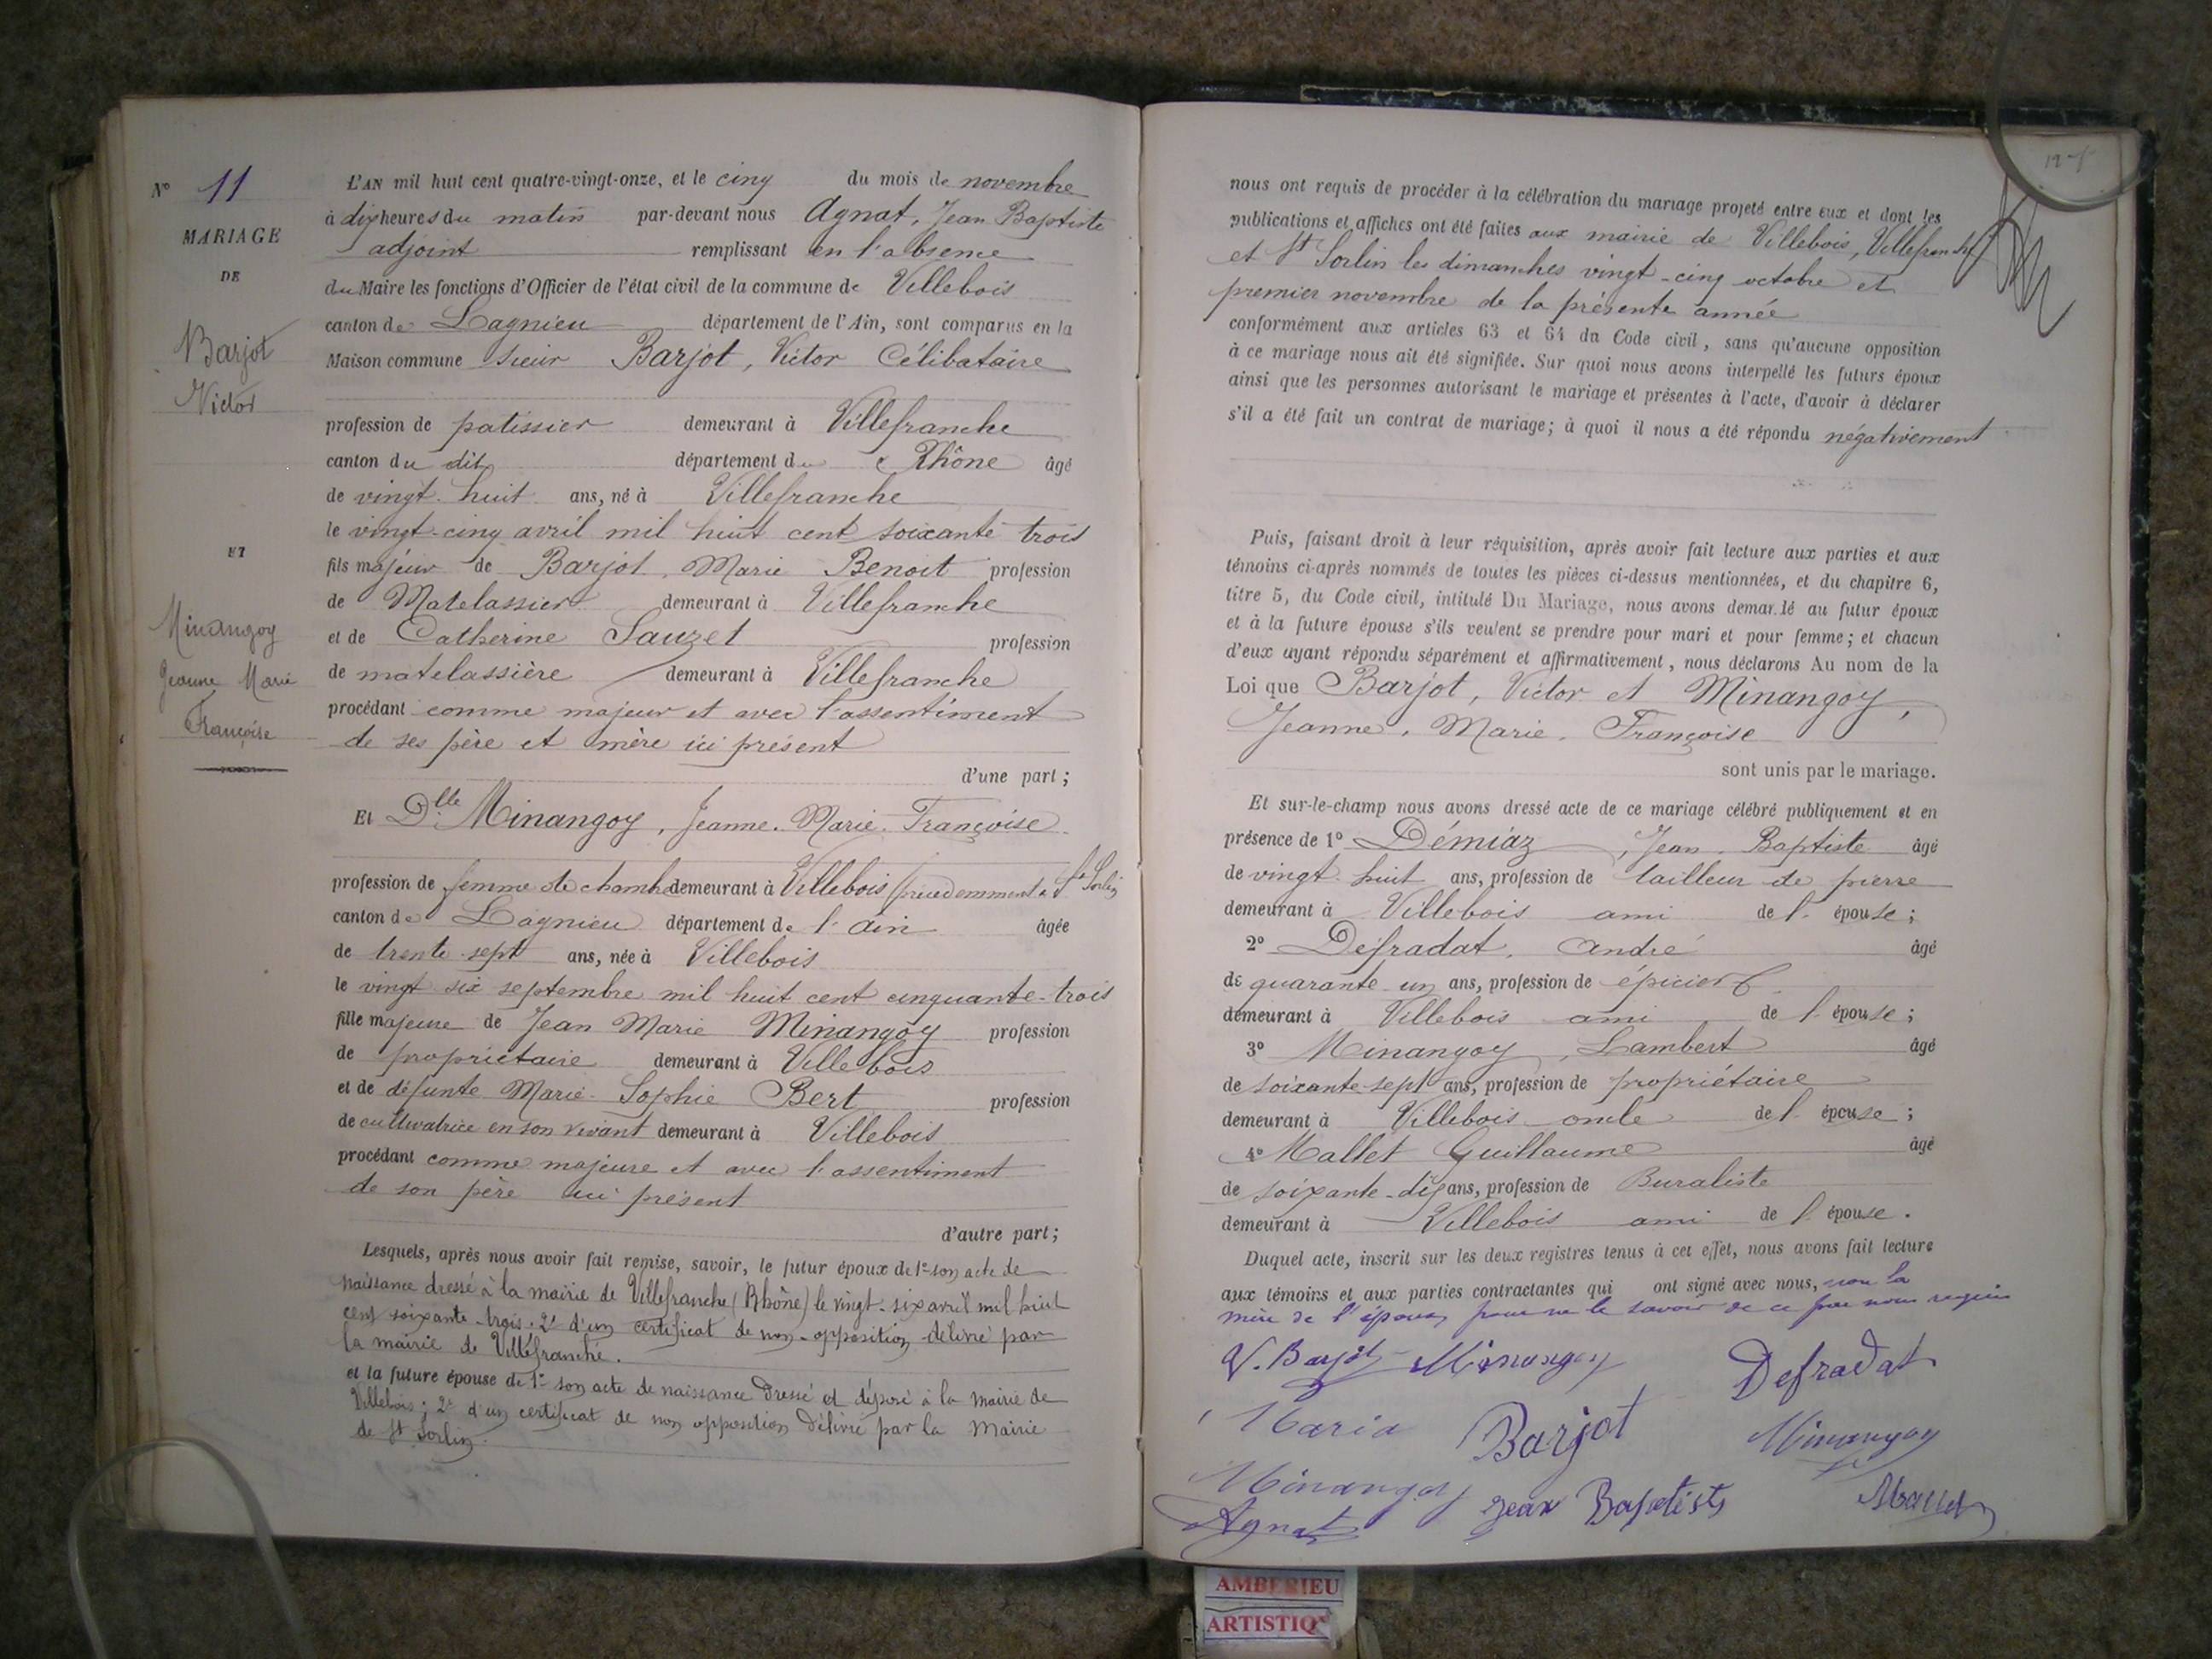 N° 11
MARIAGE
DE
Barjot
Victor
ET
Minangoy
Jeanne Marie
Françoise
L'AN mil huit cent quatre-vingt-onze, et le cinq du mois de novembre
à dix heures du matin par-devant nous Agnat, Jean Baptiste
adjoint remplissant en l'absence
du Maire les fonctions d'Officier de l'état civil de la commune de Villebois
canton de Lagnieu département de l'Ain, sont comparus en la
Maison commune sieur Barjot, Victor Célibataire
profession de patissier demeurant à Villefranche
canton du dit département du Rhône âgé
de vingt-huit ans, né à Villefranche
le vingt-cinq avril mil huit cent soixante trois
fils majeur de Barjot, Marie Benoit profession
de Matelassier demeurant à Villefranche
et de Catherine Sauzet profession
de matelassière demeurant à Villefranche
procédant comme majeur et avec l'assentiment
de ses père et mère ici présent
d'une part;
Et Dlle Minangoy, Jeanne. Marie. Françoise
profession de femme de chambre demeurant à Villebois (précedemment à St Sorlin
canton de Lagnieu département de l'Ain âgée
de trente-sept ans, née à Villebois
le vingt six septembre mil huit cent cinquante-trois
fille majeure de Jean Marie Minangoy profession
de propriétaire demeurant à Villebois
et de défunte Marie-Sophie Bert profession
de cultivatrice en son vivant demeurant à Villebois
procédant comme majeure et avec l'assentiment
de son père ici présent
d'autre part;
Lesquels, après nous avoir fait remise, savoir, le futur époux de 1° son acte de
naissance dressé à la mairie de Villefranche (Rhône) le vingt-six avril mil huit
cent soixante-trois. 2° d'un certificat de non-opposition délivré par
la mairie de Villefranche.
et la future épouse de 1° son acte de naissance dressé et déposé à la mairie de
Villebois; 2° d'un certificat de non opposition délivré par la Mairie
de St Sorlin.
nous ont requis de procéder à la célébration du mariage projeté entre eux et dont les
publications et affiches ont été faites aux mairie de Villebois, Villefranche
et St Sorlin les dimanches vingt-cinq octobre et
premier novembre de la présente année
conformément aux articles 63 et 64 du Code civil, sans qu'aucune opposition
à ce mariage nous ait été signifiée. Sur quoi nous avons interpellé les futurs époux
ainsi que les personnes autorisant le mariage et présentes à l'acte, d'avoir à déclarer
s'il a été fait un contrat de mariage; à quoi il nous a été répondu négativement
Puis, faisant droit à leur réquisition, après avoir fait lecture aux parties et aux
témoins ci-après nommés de toutes les pièces ci-dessus mentionnées, et du chapitre 6,
titre 5, du Code civil, intitulé Du Mariage, nous avons demandé au futur époux
et à la future épouse s'ils veulent se prendre pour mari et pour femme; et chacun
d'eux ayant répondu séparément et affirmativement, nous déclarons Au nom de la
Loi que Barjot, Victor et Minangoy,
Jeanne. Marie. Françoise
sont unis par le mariage.
Et sur-le-champ nous avons dressé acte de ce mariage célébré publiquement et en
présence de 1° Démiaz, Jean-Baptiste âgé
de vingt-huit ans, profession de tailleur de pierre
demeurant à Villebois ami de l'épouse;
2° Defradat, André âgé
de quarante-un ans, profession de épicier
demeurant à Villebois ami de l'épouse;
3° Minangoy, Lambert âgé
de soixante-sept ans, profession de propriétaire
demeurant à Villebois oncle de l'épouse;
4° Mallet Guillaume âgé
de soixante-dix ans, profession de Buraliste
demeurant à Villebois ami de l'épouse.
Duquel acte, inscrit sur les deux registres tenus à cet effet, nous avons fait lecture
aux témoins et aux parties contractantes qui ont signé avec nous, non la
mère de l'époux pour ne le savoir de ce par nous requis
V. Barjot Minangoy Defradat
Maria Barjot Minangoy
Minangoy Jean Baptiste Mallet
Agnat
AMBERIEU
ARTISTIQ